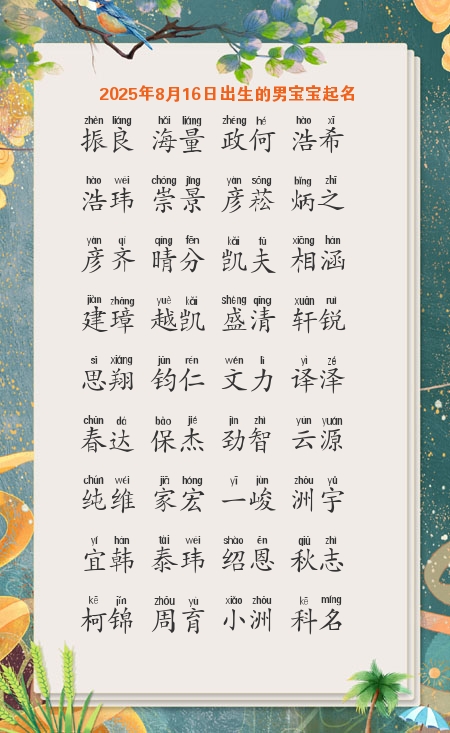 2025年8月16日出生的男宝宝起名
zhèn liáng hǎi liáng zhéng hé hào xī
振良 海量 政何 浩希
hào wěi chóng jǐng yàn sōng bǐng zhī
浩玮 崇景 彦菘 炳之
yàn qí qíng fēn kǎi fū xiāng hán
彦齐 晴分 凯夫 相涵
jiàn zhāng yuè kǎi shèng qīng xuān ruì
建璋 越凯 盛清 轩锐
sī xiáng jūn rén wén lì yì zé
思翔 钧仁 文力 译泽
chūn dá bǎo jié jìn zhì yún yuán
春达 保杰 劲智 云源
chún wéi jiā hóng yī jùn zhōu yǔ
纯维 家宏 一峻 洲宇
yí hán tài wěi shào ēn qiū zhì
宜韩 泰玮 绍恩 秋志
kē jǐn zhōu yù xiǎo zhōu kē míng
柯锦 周育 小洲 科名